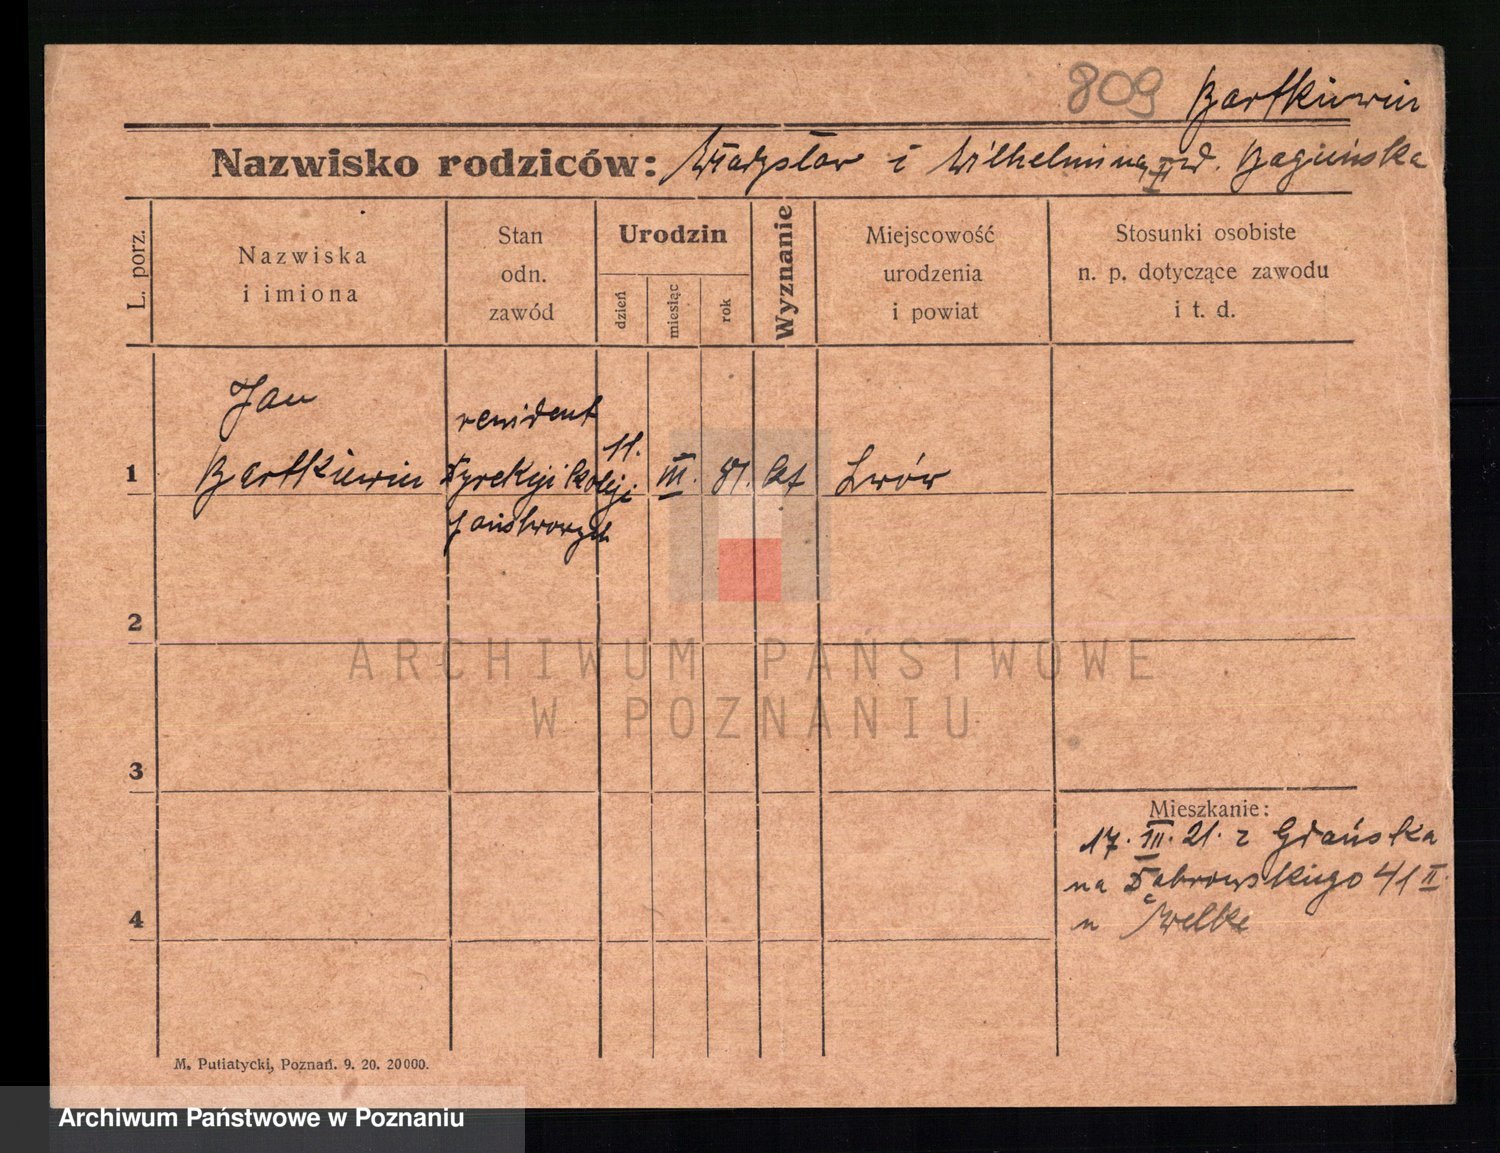 809 Bartkiewicz
Nazwisko rodziców: Władysław i Wilhelmina
L. porz.
Nazwiska
i imiona
Stan
odn.
zawód
Urodzin
dzień
miesiąc
rok
Wyznanie
Miejscowość
urodzenia
i powiat
Stosunki osobiste
n. p. dotyczące zawodu
i t. d.
1
Jan
Bartkiewicz
rewident
Dyrekcji Koleji
Państwowych
11.
III.
81.
kat
Lwów
2
3
4
Mieszkanie:
17. III. 21. z Gdańska
na Dąbrowskiego 41 II.
u Welke
M. Putiatycki, Poznań. 9. 20. 20000.
ARCHIWUM PAŃSTWOWE
W POZNANIU
Archiwum Państwowe w Poznaniu